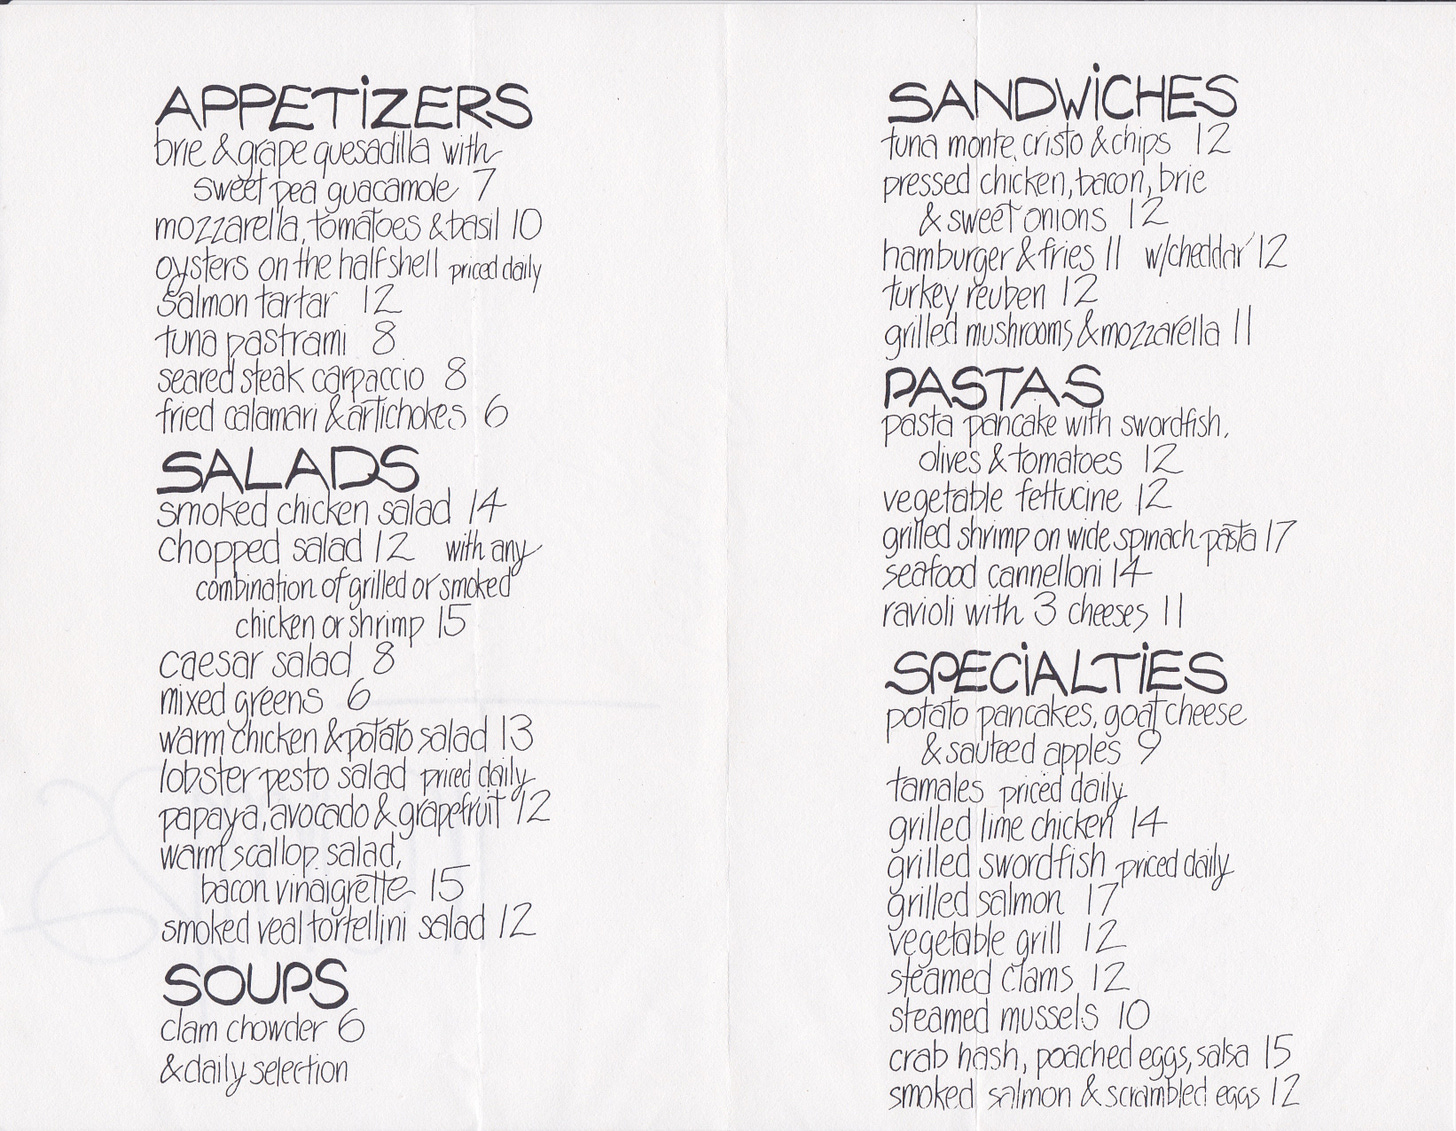 APPETiZERS
brie & grape quesadilla with
sweet pea guacamole 7
mozzarella, tomatoes & basil 10
oysters on the half shell priced daily
salmon tartar 12
tuna pastrami 8
seared steak carpaccio 8
fried calamari & artichokes 6
SALADS
smoked chicken salad 14
chopped salad 12 with any
combination of grilled or smoked
chicken or shrimp 15
caesar salad 8
mixed greens 6
warm chicken & potato salad 13
lobster pesto salad priced daily
papaya, avocado & grapefruit 12
warm scallop salad,
bacon vinaigrette 15
smoked veal tortellini salad 12
SOUPS
clam chowder 6
& daily selection
SANDWiCHES
tuna monte cristo & chips 12
pressed chicken, bacon, brie
& sweet onions 12
hamburger & fries 11 w/cheddar 12
turkey reuben 12
grilled mushrooms & mozzarella 11
PASTAS
pasta pancake with swordfish,
olives & tomatoes 12
vegetable fettucine 12
grilled shrimp on wide spinach pasta 17
seafood cannelloni 14
ravioli with 3 cheeses 11
SPECiALTiES
potato pancakes, goat cheese
& sauteed apples 9
tamales priced daily
grilled lime chicken 14
grilled swordfish priced daily
grilled salmon 17
vegetable grill 12
steamed clams 12
steamed mussels 10
crab hash, poached eggs, salsa 15
smoked salmon & scrambled eggs 12